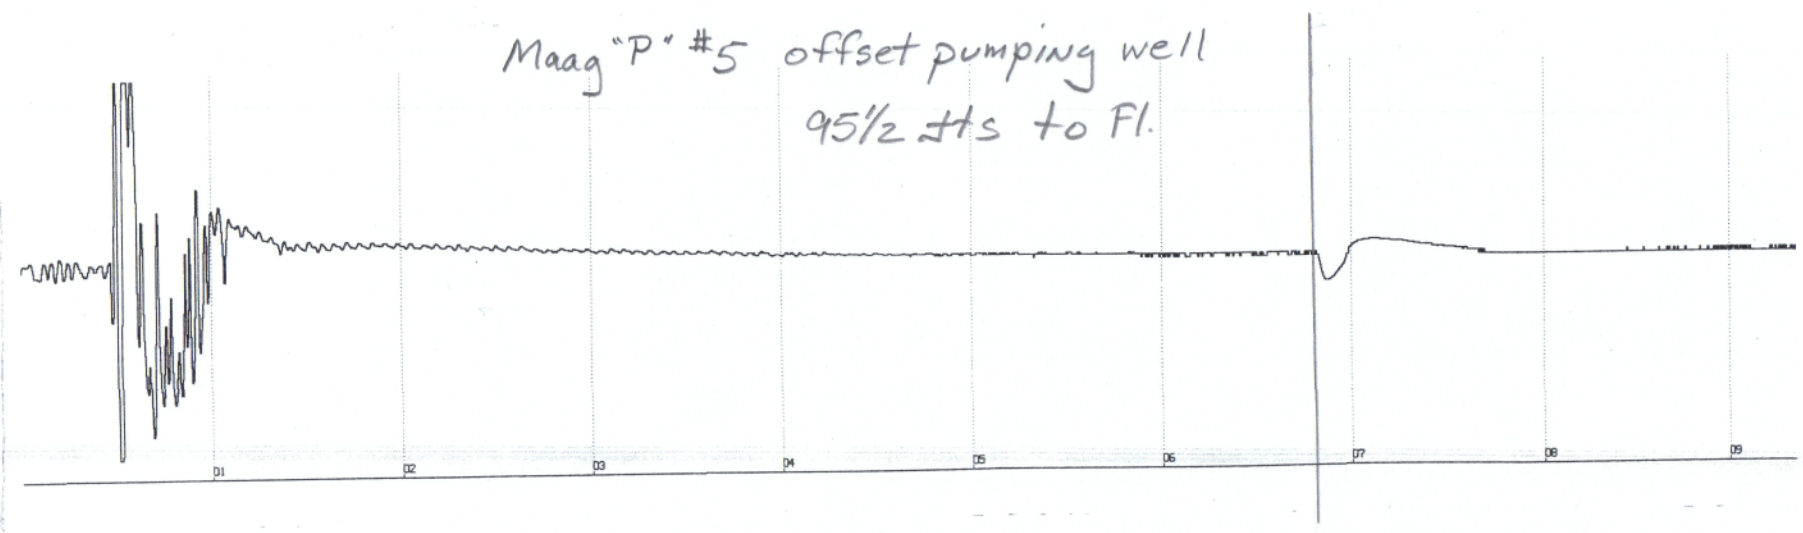 Maag "P" #5 offset pumping well
95½ jts to Fl.
01 02 03 04 05 06 07 08 09